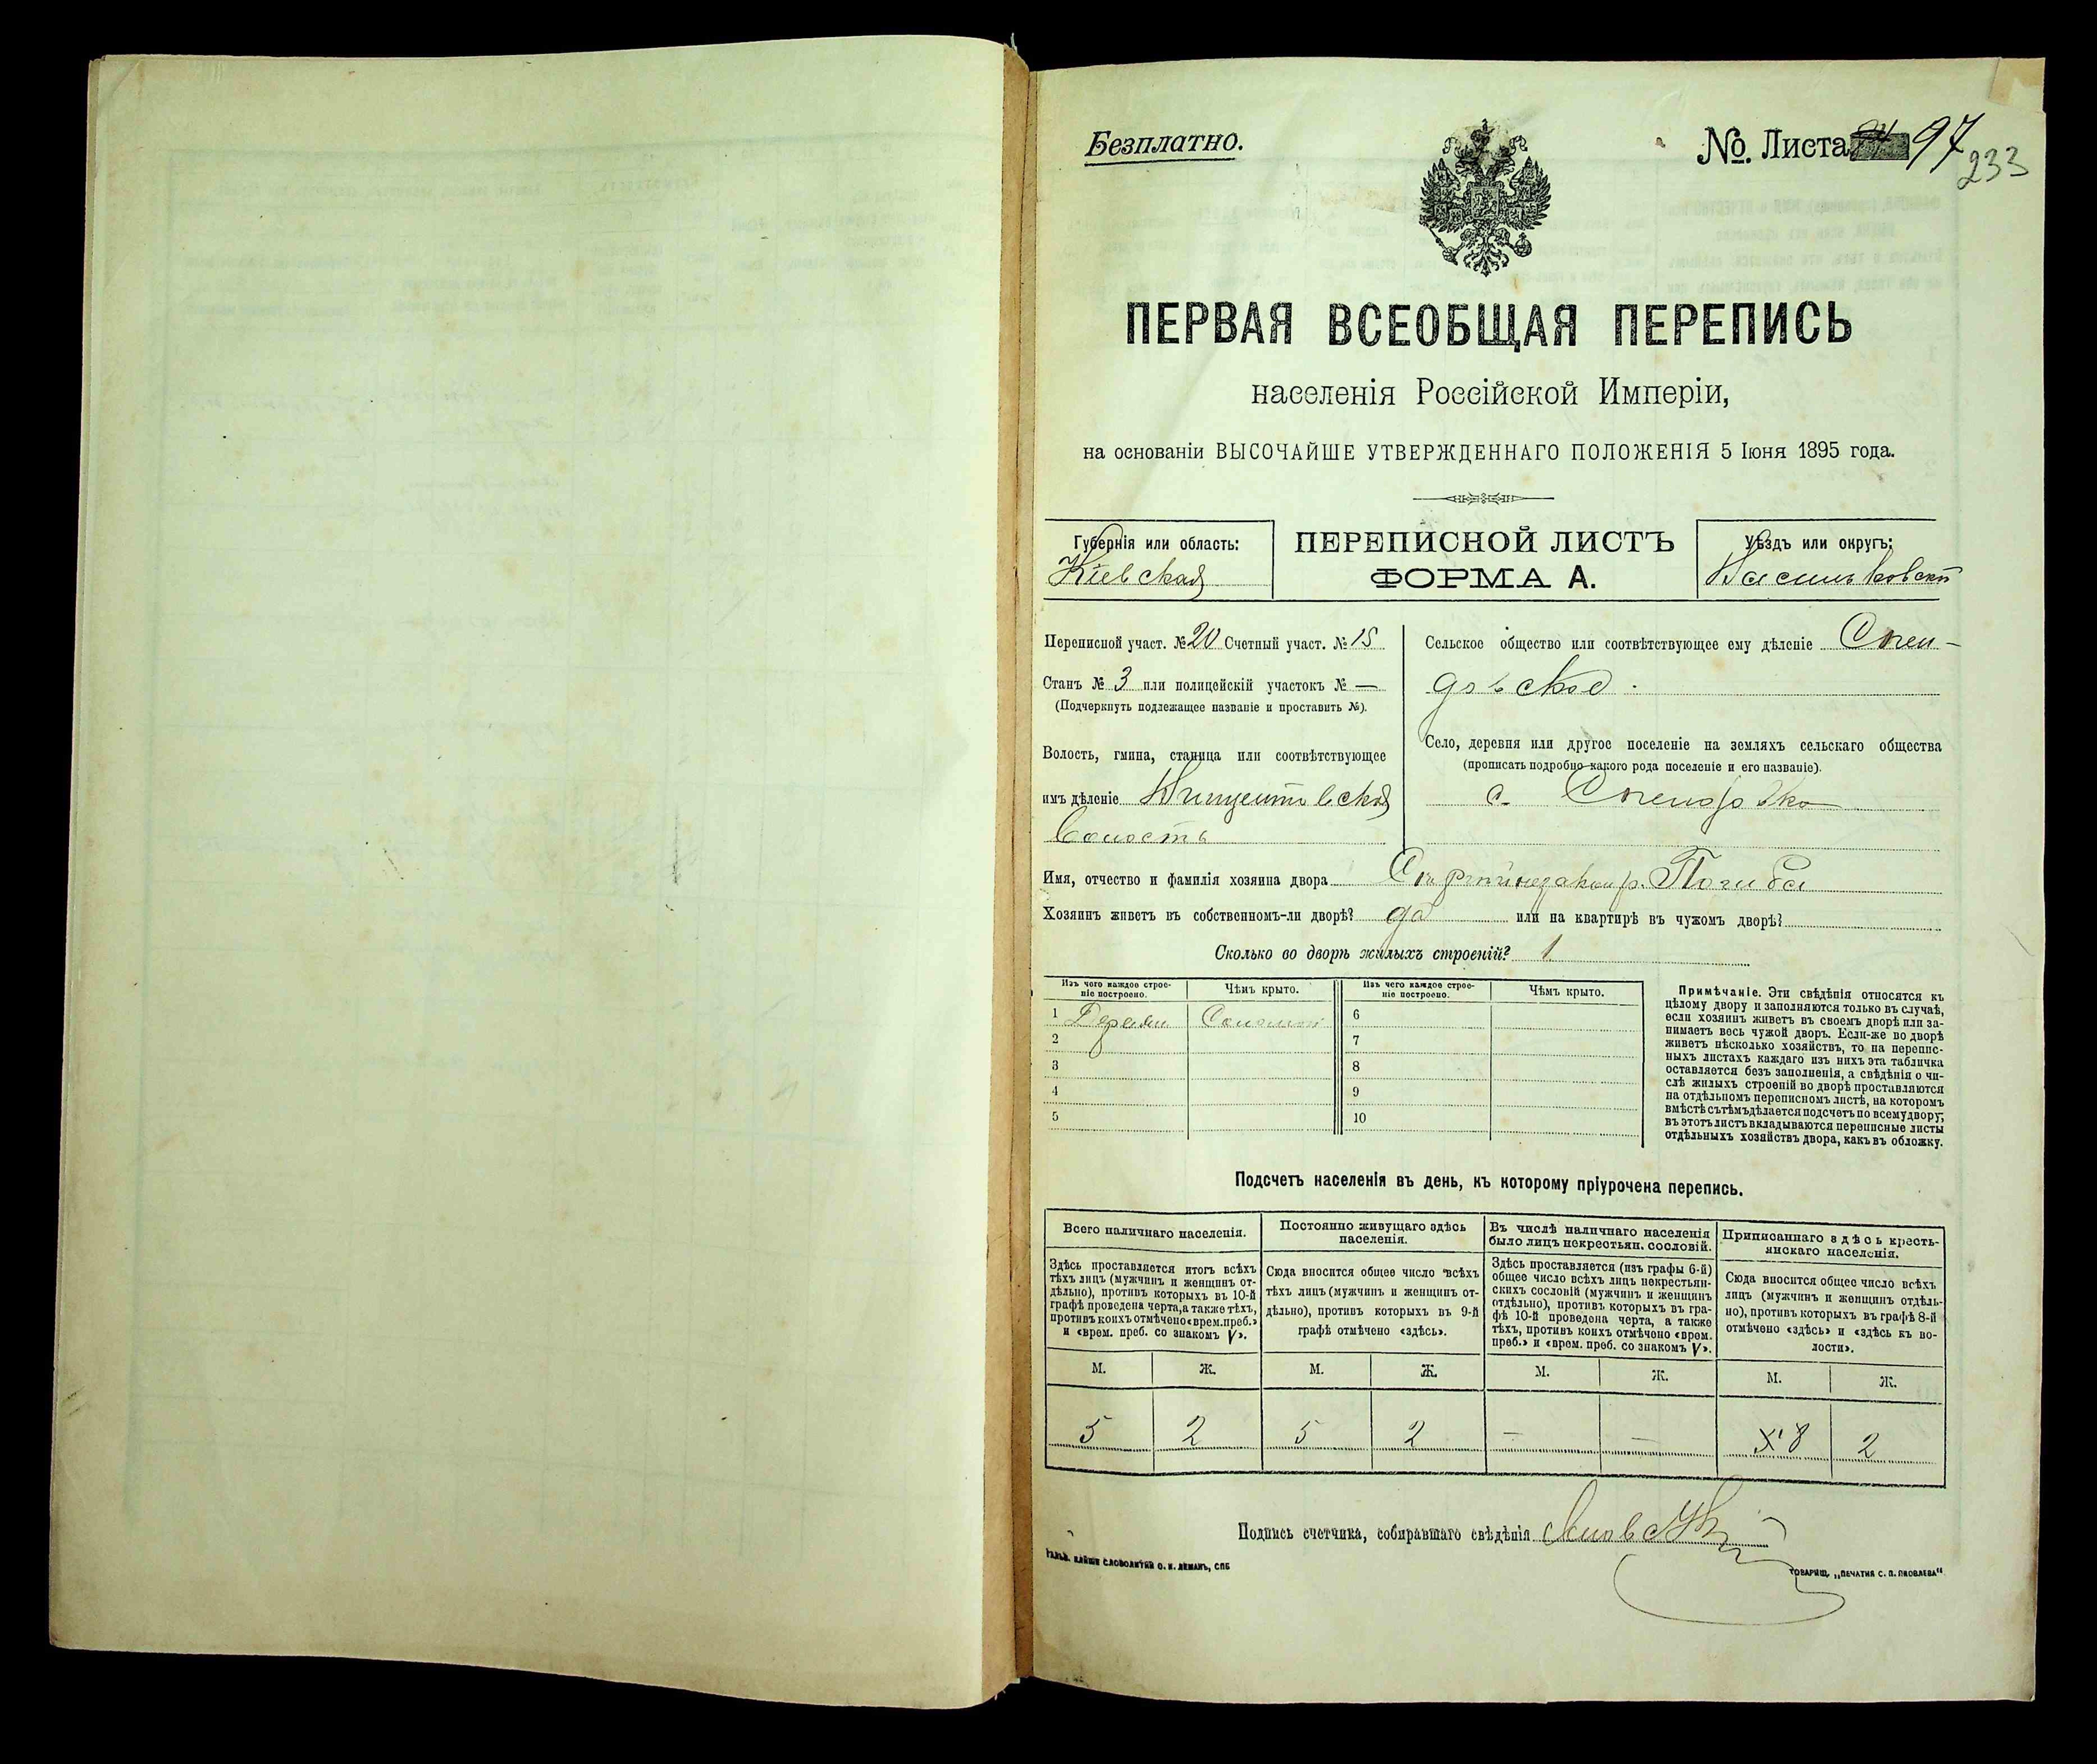 Безплатно.
№. Листа 97
233
ПЕРВАЯ ВСЕОБЩАЯ ПЕРЕПИСЬ
населенія Россійской Имперіи,
на основаніи ВЫСОЧАЙШЕ УТВЕРЖДЕННАГО ПОЛОЖЕНІЯ 5 Іюня 1895 года.
Губернія или область:
Кіевская
ПЕРЕПИСНОЙ ЛИСТЪ
ФОРМА А.
Уѣздъ или округъ:
Васильковскій
Переписной участ. № 20 Счетный участ. № 15
Станъ № 3 или полицейскій участокъ № —
(Подчеркнуть подлежащее названіе и проставить №).
Волость, гмина, станица или соотвѣтствующее
имъ дѣленіе Винцентовская
волость
Сельское общество или соотвѣтствующее ему дѣленіе
Село, деревня или другое поселеніе на земляхъ сельскаго общества
(прописать подробно какого рода поселеніе и его названіе).
с.
Имя, отчество и фамилія хозяина двора
Хозяинъ живетъ въ собственномъ-ли дворѣ? да или на квартирѣ въ чужомъ дворѣ?
Сколько во дворѣ жилыхъ строеній? 1
Изъ чего каждое строе-
ніе построено.
Чѣмъ крыто.
Изъ чего каждое строе-
ніе построено.
Чѣмъ крыто.
1 Деревян Соломой
2
3
4
5
6
7
8
9
10
Примѣчаніе. Эти свѣдѣнія относятся къ
цѣлому двору и заполняются только въ случаѣ,
если хозяинъ живетъ въ своемъ дворѣ или за-
нимаетъ весь чужой дворъ. Если-же во дворѣ
живетъ нѣсколько хозяйствъ, то на перепис-
ныхъ листахъ каждаго изъ нихъ эта табличка
оставляется безъ заполненія, а свѣдѣнія о чи-
слѣ жилыхъ строеній во дворѣ проставляются
на отдѣльномъ переписномъ листѣ, на которомъ
вмѣстѣ съ тѣмъ дѣлается подсчетъ по всему двору;
въ этотъ листъ вкладываются переписные листы
отдѣльныхъ хозяйствъ двора, какъ въ обложку.
Подсчетъ населенія въ день, къ которому пріурочена перепись.
Всего наличнаго населенія.
Здѣсь проставляется итогъ всѣхъ
тѣхъ лицъ (мужчинъ и женщинъ от-
дѣльно), противъ которыхъ въ 10-й
графѣ проведена черта, а также тѣхъ,
противъ коихъ отмѣчено «врем. преб.»
и «врем. преб. со знакомъ V».
Постоянно живущаго здѣсь
населенія.
Сюда вносится общее число всѣхъ
тѣхъ лицъ (мужчинъ и женщинъ от-
дѣльно), противъ которыхъ въ 9-й
графѣ отмѣчено «здѣсь».
Въ числѣ наличнаго населенія
было лицъ некрестьян. сословій.
Здѣсь проставляется (изъ графы 6-й)
общее число всѣхъ лицъ некрестьян-
скихъ сословій (мужчинъ и женщинъ
отдѣльно), противъ которыхъ въ гра-
фѣ 10-й проведена черта, а также
тѣхъ, противъ коихъ отмѣчено «врем.
преб.» и «врем. преб. со знакомъ V».
Приписаннаго здѣсь кресть-
янскаго населенія.
Сюда вносится общее число всѣхъ
лицъ (мужчинъ и женщинъ отдѣль-
но), противъ которыхъ въ графѣ 8-й
отмѣчено «здѣсь» и «здѣсь къ во-
лости».
М. Ж. М. Ж. М. Ж. М. Ж.
5 2 5 2 — — 8 2
Подпись счетчика, собиравшаго свѣдѣнія
ТОВАРИЩ. „ПЕЧАТНЯ С. П. ЯКОВЛЕВА“